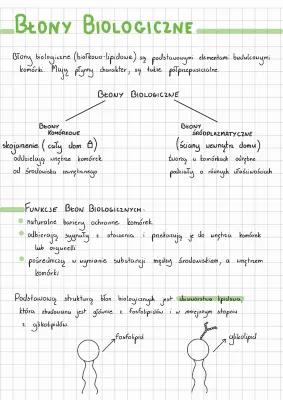 BŁONY BIOLOGICZNE
Błony biologiczne (białkowo-lipidowe) są podstawowymi elementami budulcowymi
komórki. Mają płynny charakter, są także półprzepuszczalne.
BŁONY BIOLOGICZNE
BŁONY
KOMÓRKOWE
skojarzenie (cały dom)
oddzielają wnętrze komórek
od środowiska zewnętrznego
BŁONY
ŚRÓDPLAZMATYCZNE
(ściany wewnątrz domu)
tworzą w komórkach odrębne
przedziały o różnych właściwościach
FUNKCJE BŁON BIOLOGICZNYCH:
naturalne bariery ochronne komórek.
odbierają sygnały z otoczenia i przekazują je do wnętrza komórek
lub organelli
pośredniczą w wymianie substancji między środowiskiem, a wnętrzem
komórki
Podstawową strukturą błon biologicznych jest dwuwarstwa lipidowa,
która zbudowana jest głównie z fosfolipidów i w mniejszym stopniu
z glikolipidów.
fosfolipid
glikolipid